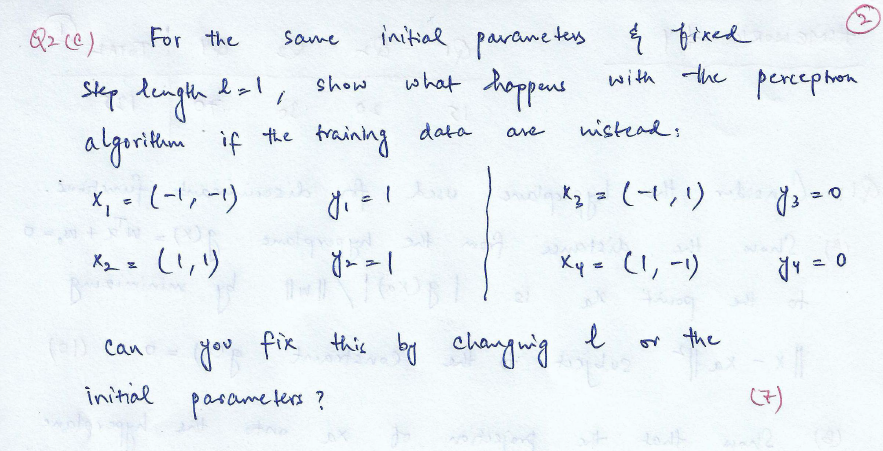 2
Q2 (c) For the same initial parameters & fixed
step length l=1, show what happens with the perceptron
algorithm if the training data are instead:
x₁ = (-1, -1) y₁ = 1 x₃ = (-1, 1) y₃ = 0
x₂ = (1, 1) y₂ = 1 x₄ = (1, -1) y₄ = 0
can you fix this by changing l or the
initial parameters? (7)